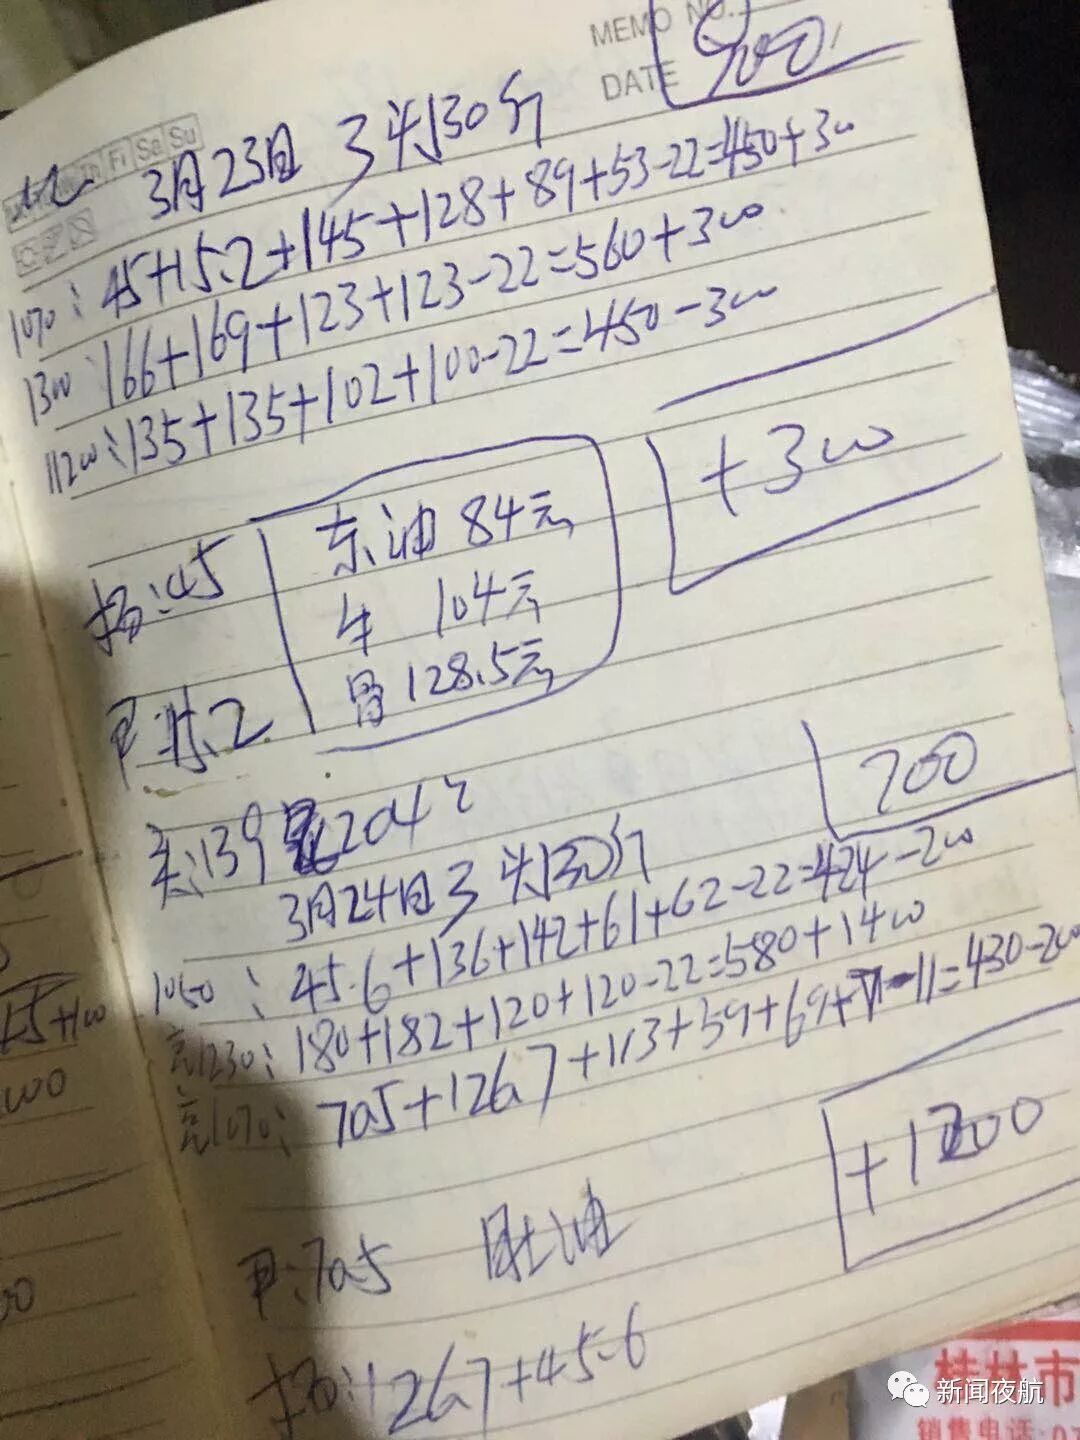 MEMO NO.
DATE 900
Fi Sa Su
3月23日 3头130斤
1070: 45+15.2+145+128+89+53-22=450+300
1300: 166+169+123+123-22=560+300
1120: 135+135+102+100-22=450-300
+300
杨:45
东油 84元
牛 104元
骨 128.5元
15.2
139 204
700
3月24日 3头130斤
1050: 45.6+136+142+61+62-22=424-200
亮1230: 180+182+120+120-22=580+1400
亮1070: 70.5+126.7+113+59+69+71-11=430-200
+1200
70.5 肚油
杨:126.7+45.6
45+100
新闻夜航
桂林市
销售电话:07